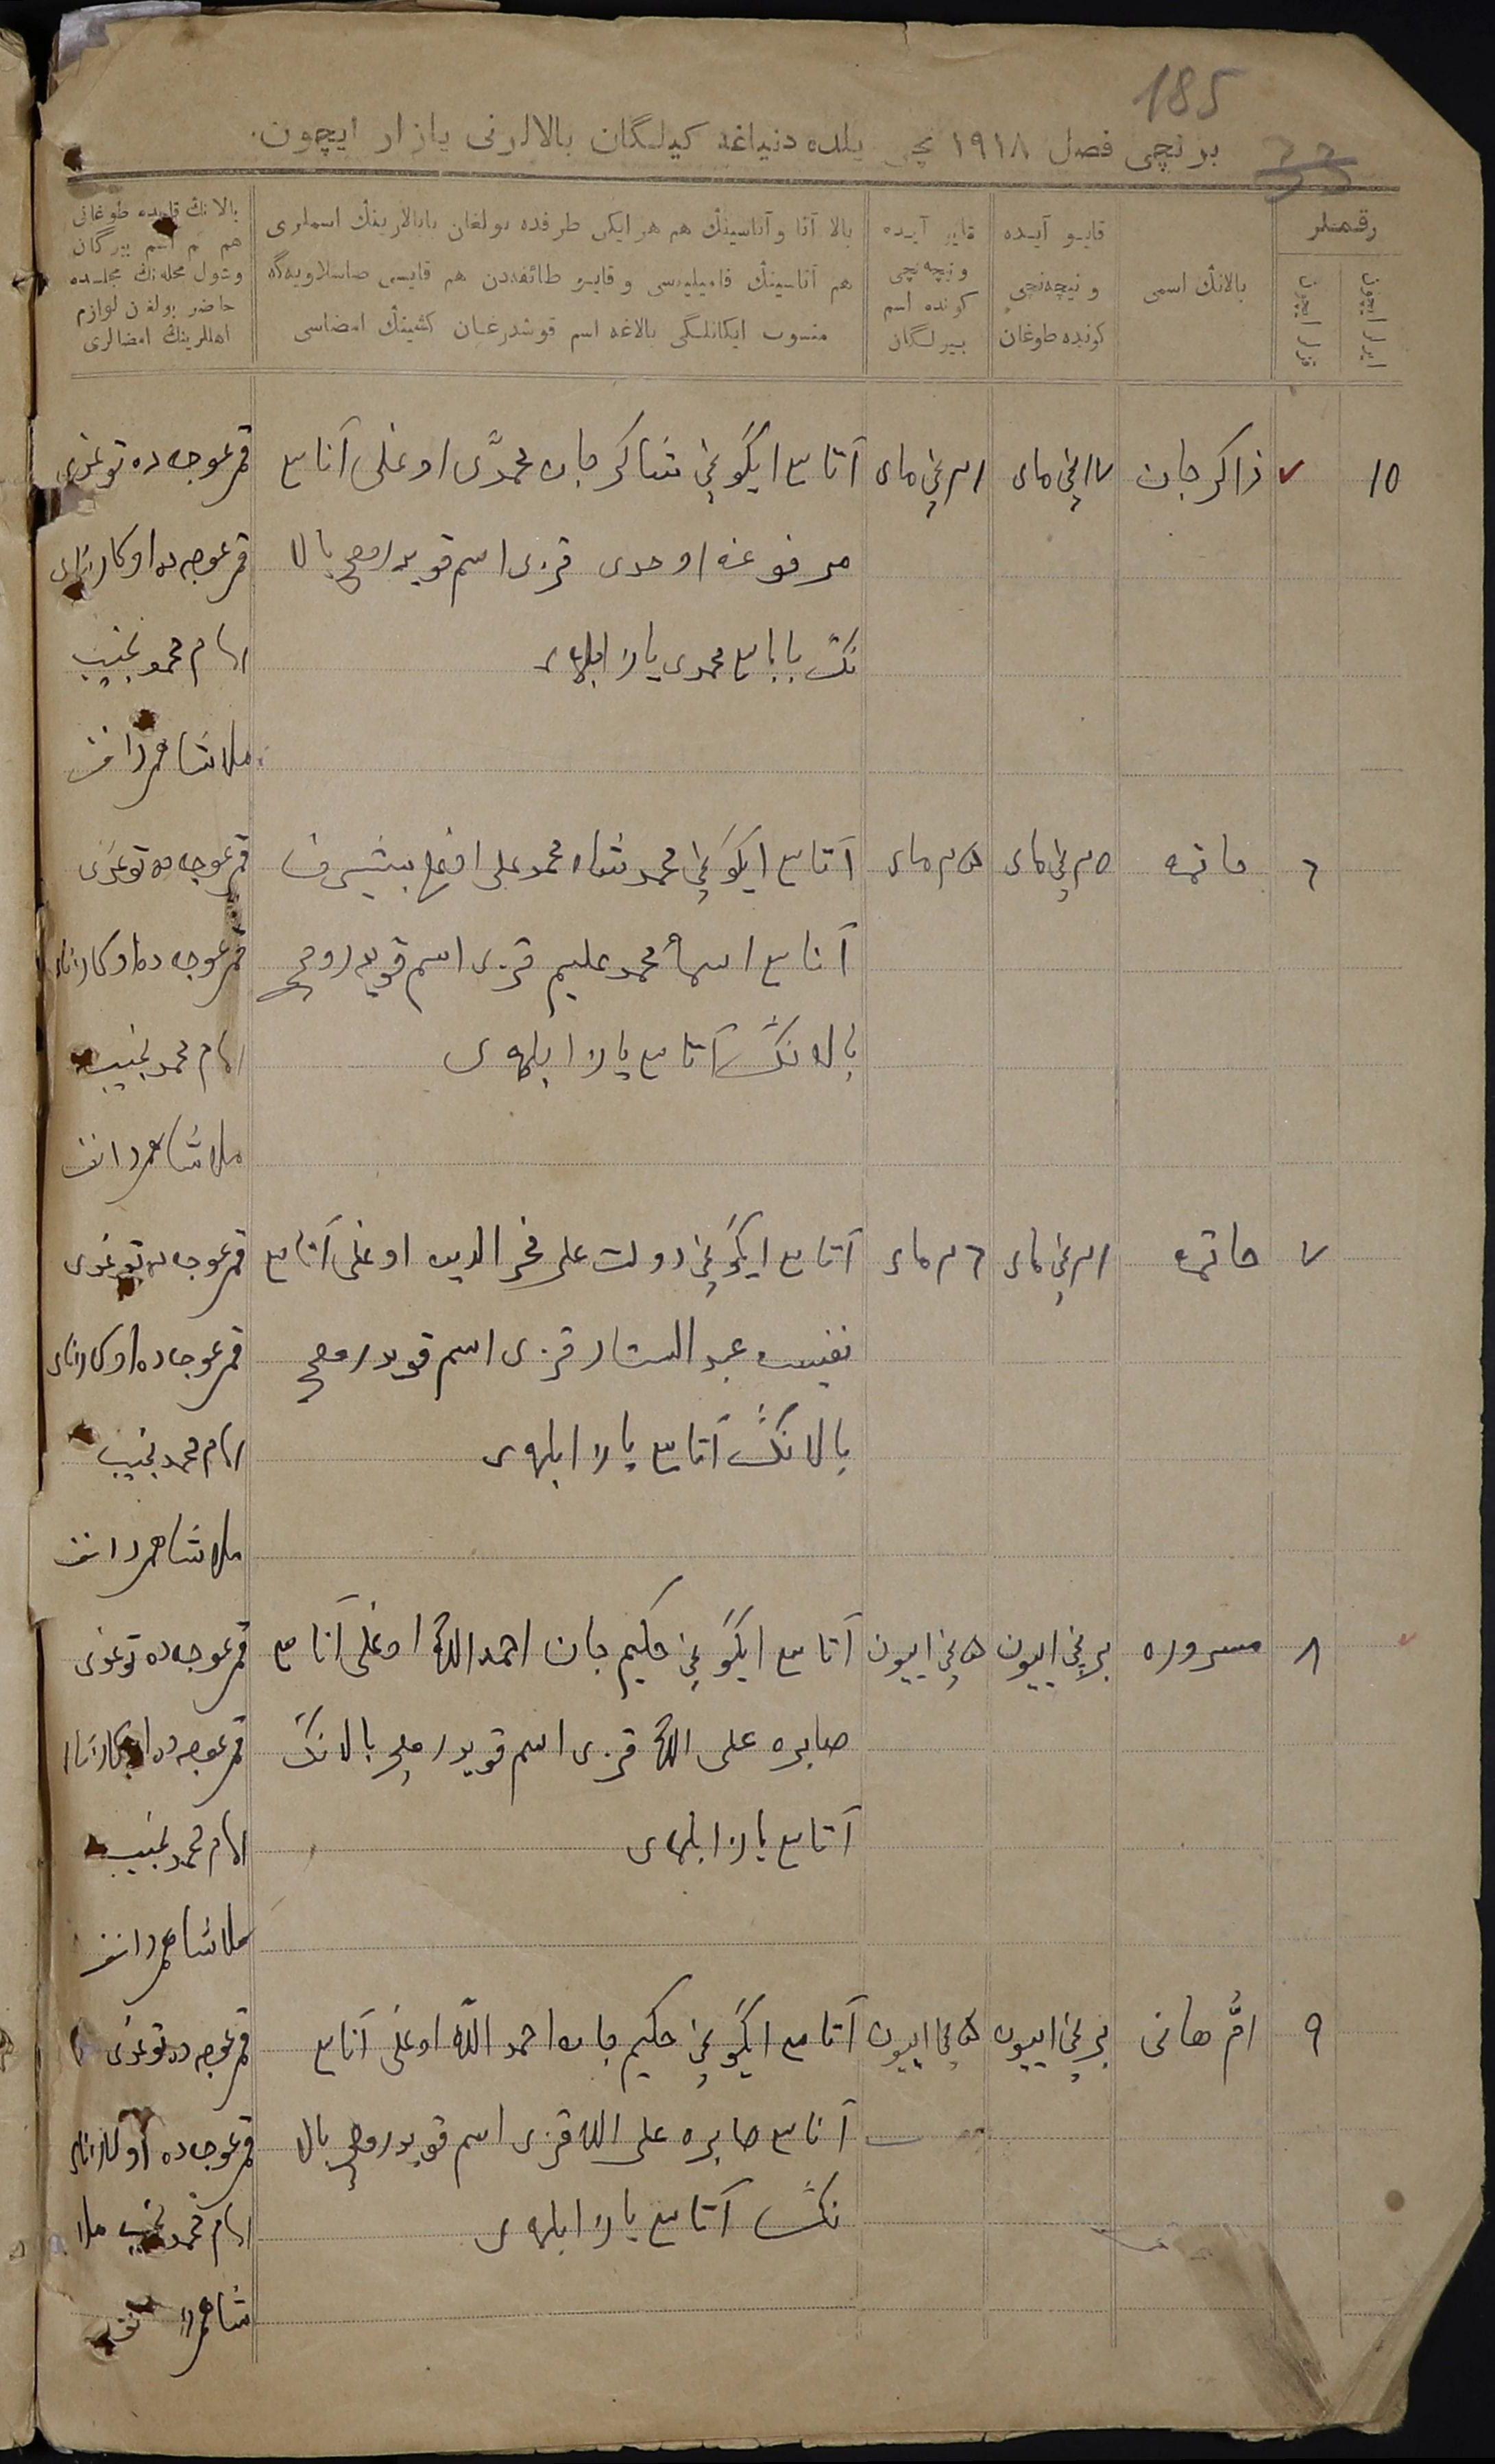 185
33
برنچی فصل ١٩١٨ نچی یلده دنیاغه کیلگان بالالرنی یازار ایچون.
رقملر
ایرلر ایچون
قزلر ایچون
بالانڭ اسمی
قایو آیده
و نیچه‌نچی
کونده طوغان
قایو آیده
و نیچه‌نچی
کونده اسم
بیرلگان
بالا آتا و آناسینڭ هم هر ایکی طرفده بولغان بابالارینڭ اسملری
هم آتاسینڭ فامیلیه‌سی و قایو طائفه‌دن هم قایسی صاسلاویه‌گه
منسوب ایکانلگی بالاغه اسم قوشدرغان کشینڭ امضاسی
بالانڭ قایده طوغانی
هم اسم بیرگان
وشول محله‌نڭ مجلسده
حاضر بولغان لوازم
اهللرینڭ امضالری
١٥
ذاکر جان
١٧ نچی مای
٢١ نچی مای
آتاسی ایگونچی شاکر جان محمدی اوغلی آناسی
مرفوعه اوحدی قزی اسم قویدروچی بالا
نڭ باباسی محمدی یازا بلمی
قرعوجه ده توغدی
قرعوجه ده اوکازنای
امام محمد نجیب
ملا شاهمردانف
٦
ماتمه
٢٥ نچی مای
٢٥ مای
آتاسی ایگونچی محمدشاه محمدعلی اوغلی
آناسی اسما محمدعلیم قزی اسم قویدروچی
بالانڭ آتاسی یازا بلمی
قرعوجه ده توغدی
قرعوجه ده اوکازنای
امام محمد نجیب
ملا شاهمردانف
٧
حاتمه
٢١ نچی مای
٢٦ مای
آتاسی ایگونچی دولت علی فخر الدین اوغلی آناسی
نفیسه عبد الستار قزی اسم قویدروچی
بالانڭ آتاسی یازا بلمی
قرعوجه ده توغدی
قرعوجه ده اوکازنای
امام محمد نجیب
ملا شاهمردانف
٨
مسروره
برنچی اییون
٥ نچی اییون
آتاسی ایگونچی حکیم جان احمد الله اوغلی آناسی
صابره علی الله قزی اسم قویدروچی بالانڭ
آتاسی یازا بلمی
قرعوجه ده توغدی
قرعوجه ده اوکازنای
امام محمد نجیب
ملا شاهمردانف
٩
امّ هانی
برنچی اییون
٥ نچی اییون
آتاسی ایگونچی حکیم جان احمد الله اوغلی آناسی
آناسی صابره علی الله قزی اسم قویدروچی بالا
نڭ آتاسی یازا بلمی
قرعوجه ده توغدی
قرعوجه ده اوکازنای
امام محمد نجیب ملا
شاهمردانف